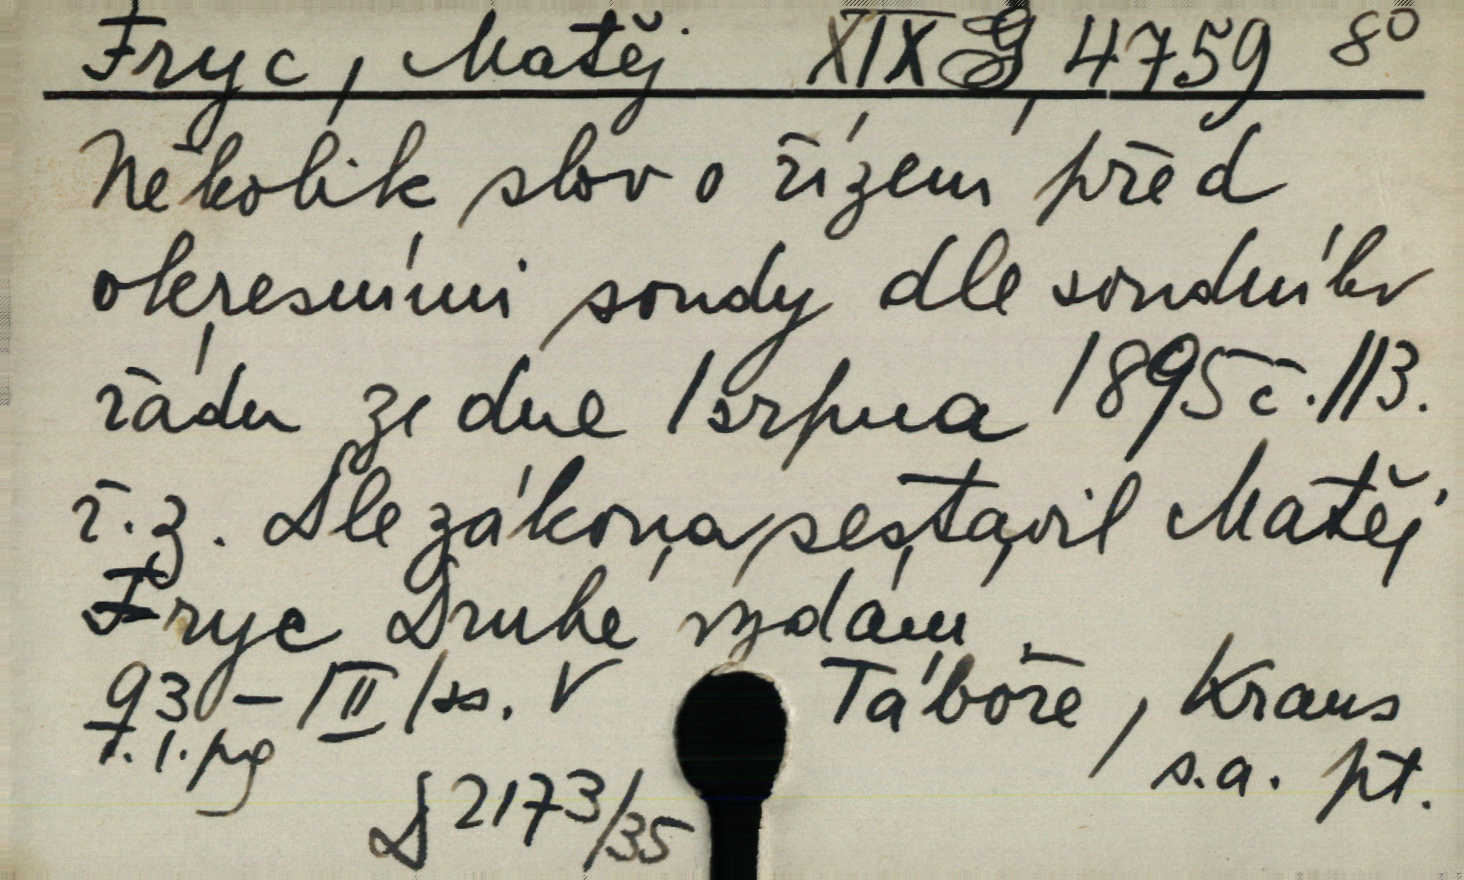 Fryc, Matěj XIX G 4759 8°
Několik slov o řízení před
okresními soudy dle soudního
řádu ze dne 1 srpna 1895 č. 113.
ř. z. Dle zákona sestavil Matěj
Fryc Druhé vydání
93 - III ss. V Táboře, Kraus
s.a. pt.
D 2173/35